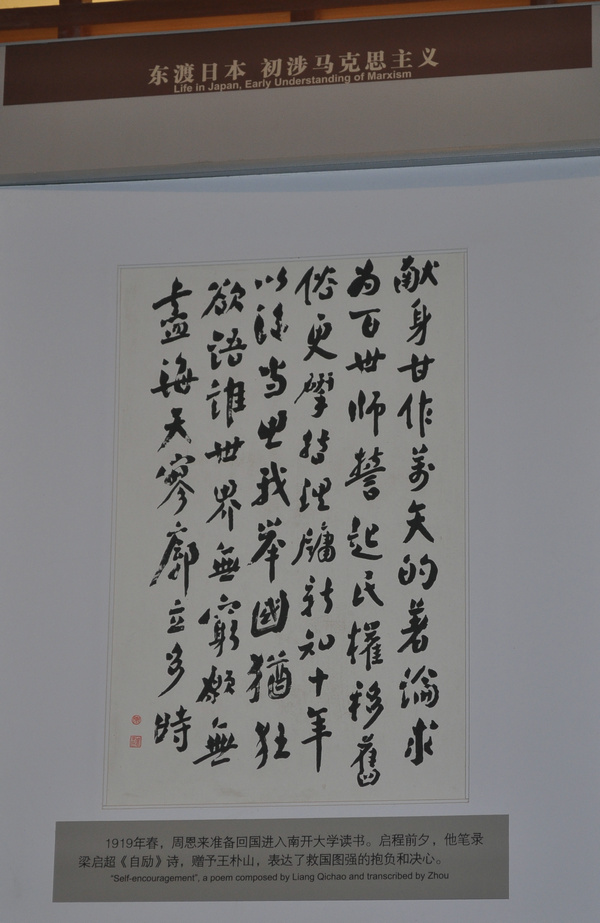 东渡日本 初涉马克思主义
Life in Japan, Early Understanding of Marxism
献身甘作萬矢的著論求
为百世师誓起民權移舊
俗更揅哲理牖新知十年
以後当思我举國猶狂
欲語誰世界無窮願無
盡海天寥廓立多時
1919年春，周恩来准备回国进入南开大学读书。启程前夕，他笔录
梁启超《自励》诗，赠予王朴山，表达了救国图强的抱负和决心。
"Self-encouragement", a poem composed by Liang Qichao and transcribed by Zhou